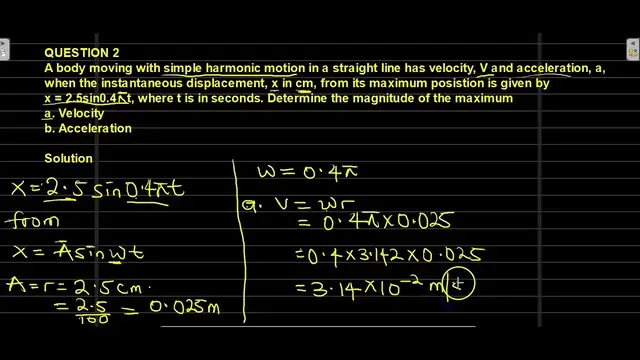 QUESTION 2
A body moving with simple harmonic motion in a straight line has velocity, V and acceleration, a,
when the instantaneous displacement, x in cm, from its maximum posistion is given by
x = 2.5sin0.4πt, where t is in seconds. Determine the magnitude of the maximum
a. Velocity
b. Acceleration
Solution
x = 2.5 sin 0.4πt
from
x = A sin wt
A = r = 2.5 cm.
= 2.5/100 = 0.025m
w = 0.4π
a. V = wr
= 0.4π × 0.025
= 0.4 × 3.142 × 0.025
= 3.14 × 10⁻² m/s